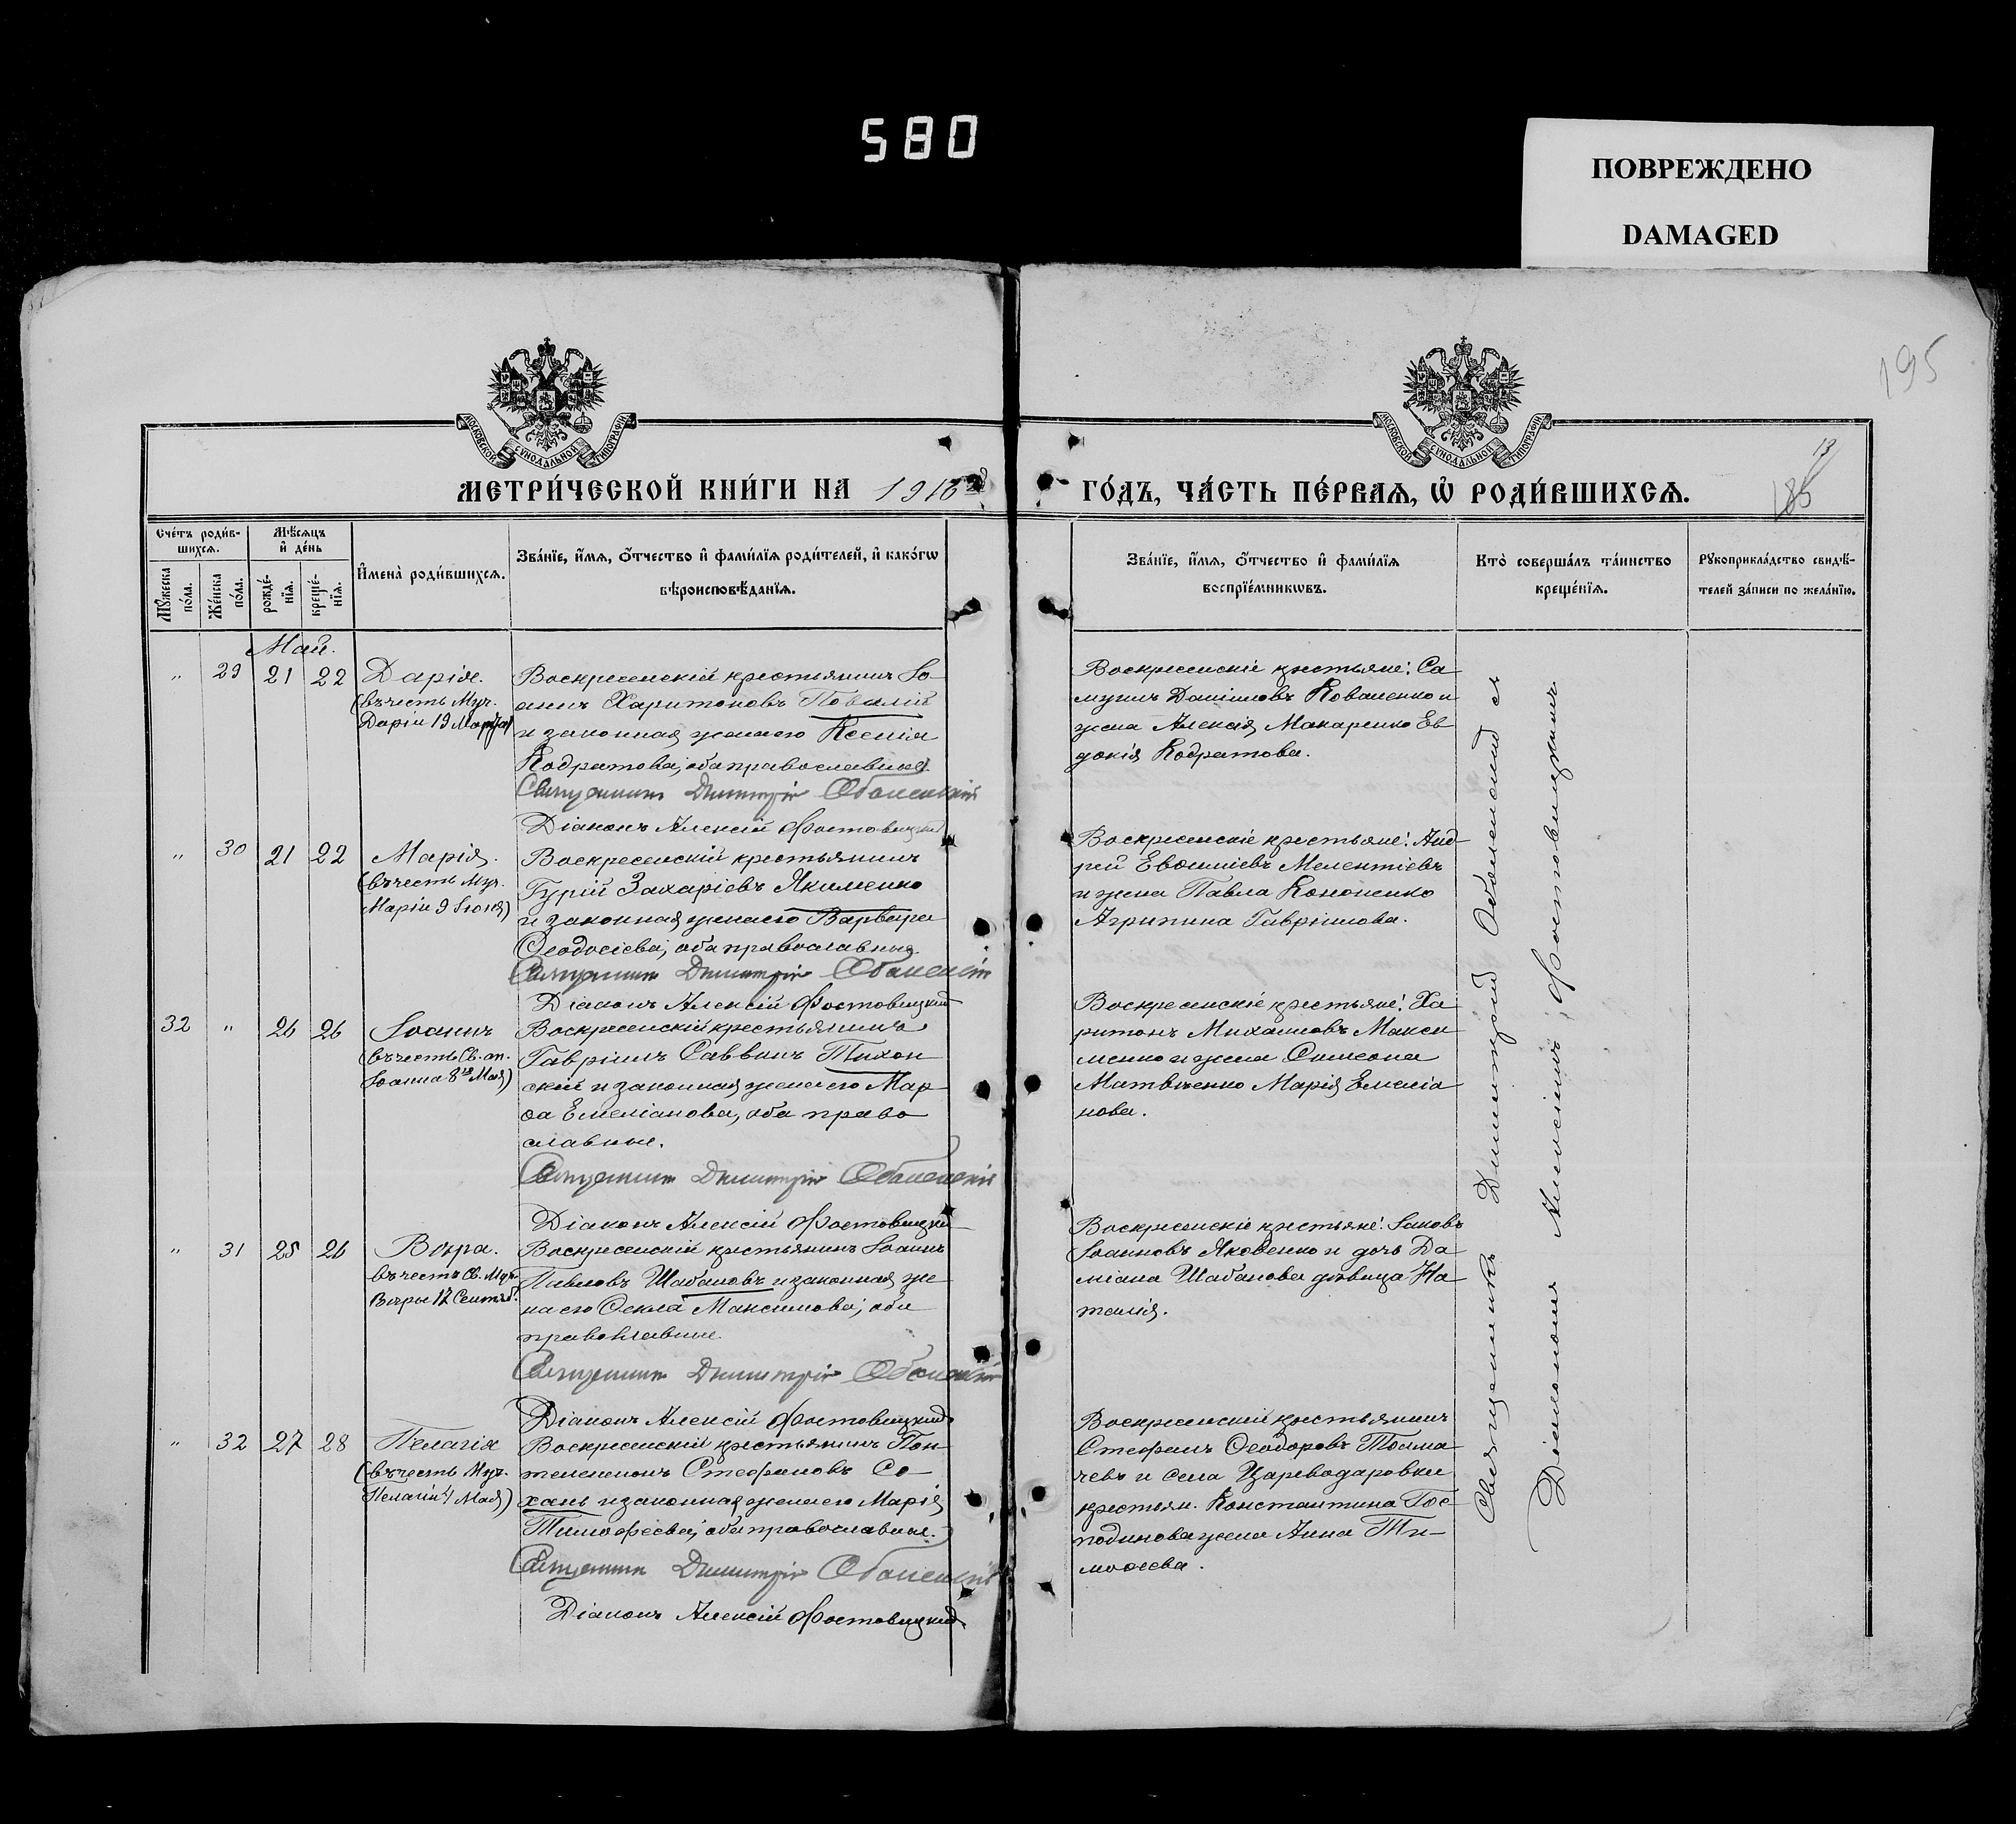 580
ПОВРЕЖДЕНО
DAMAGED
195
МОСКОВСКОЙ СѴНОДАЛЬНОЙ ТИПОГРАФІИ
МОСКОВСКОЙ СѴНОДАЛЬНОЙ ТИПОГРАФІИ
13
185
МЕТРИ́ЧЕСКОЙ КНИ́ГИ НА 1916
ГО́ДЪ, ЧА́СТЬ ПЕ́РВАѦ, Ѿ РОДИ́ВШИХСѦ.
Сче́тъ роди́в-
шихсѧ.
Мѣ́сѧцъ
и҆ де́нь
Мꙋ́жеска
по́ла.
Же́нска
по́ла.
рожде́-
нїѧ.
креще́-
нїѧ.
И҆мена̀ роди́вшихсѧ.
Зва́нїе, и҆́мѧ, ѻ҆́тчество и҆ фами́лїѧ роди́телей, и҆ како́гѡ
вѣроисповѣ́данїѧ.
Зва́нїе, и҆́мѧ, ѻ҆́тчество и҆ фами́лїѧ
воспрїе́мникѡвъ.
Кто̀ соверша́лъ та́инство
креще́нїѧ.
Рꙋкоприкла́дство свидѣ́-
телей за́писи по жела́нїю.
Май.
" 29 21 22 Дарія.
(въ честь Муч.
Даріи 19 Марта)
Воскресенскій крестьянинъ Іо-
аннъ Харитоновъ Повалій
и законная жена его Ксенія
Кодратова, оба православные.
Священникъ Димитрій Оболенскій
Діаконъ Алексій Фостовицкій
Воскресенскіе крестьяне: Са-
муилъ Даніиловъ Коваленко и
жена Алексія Макаренко Ев-
докія Кодратова.
" 30 21 22 Марія.
(въ честь Муч.
Маріи 9 Іюня)
Воскресенскій крестьянинъ
Гурій Захаріевъ Якименко
и законная жена его Варвара
Ѳеодосіева, оба православные.
Священникъ Димитрій Оболенскій
Діаконъ Алексій Фостовицкій
Воскресенскіе крестьяне: Анд-
рей Евѳиміевъ Мелентіевъ
и жена Павла Кононенко
Агрипина Гавріилова.
32 " 26 26 Іоаннъ
(въ честь Св. ап.
Іоанна 8го Мая)
Воскресенскій крестьянинъ
Гавріилъ Саввинъ Тихон-
скій и законная жена его Мар-
ѳа Емеліанова, оба право-
славные.
Священникъ Димитрій Оболенскій
Діаконъ Алексій Фостовицкій
Воскресенскіе крестьяне: Ха-
ритонъ Михаиловъ Макси-
менко и жена Симеона
Матвіенко Марія Емеліа-
нова.
" 31 25 26 Вѣра.
въ честь Св. Муч.
Вѣры 17 Сентяб.
Воскресенскій крестьянинъ Іоаннъ
Павловъ Шабановъ и законная же-
на его Ѳекла Максимова, оба
православные.
Священникъ Димитрій Оболенскій
Діаконъ Алексій Фостовицкій
Воскресенскіе крестьяне: Іаковъ
Іоанновъ Яковенко и дочь Да-
міана Шабанова дѣвица На-
талія.
" 32 27 28 Пелагія
(въ честь Муч.
Пелагіи 4 Мая)
Воскресенскій крестьянинъ Пан-
телеимонъ Стефановъ Со-
хань и законная жена его Марія
Тимофеева, оба православные.
Священникъ Димитрій Оболенскій
Діаконъ Алексій Фостовицкій
Воскресенскій крестьянинъ
Стефанъ Ѳеодоровъ Толма-
чевъ и села Цареводаровки
крестьян. Константина Гос-
подинова жена Анна Ти-
моѳеева.
Священникъ Димитрій Оболенскій съ
Діакономъ Алексіемъ Фостовицкимъ